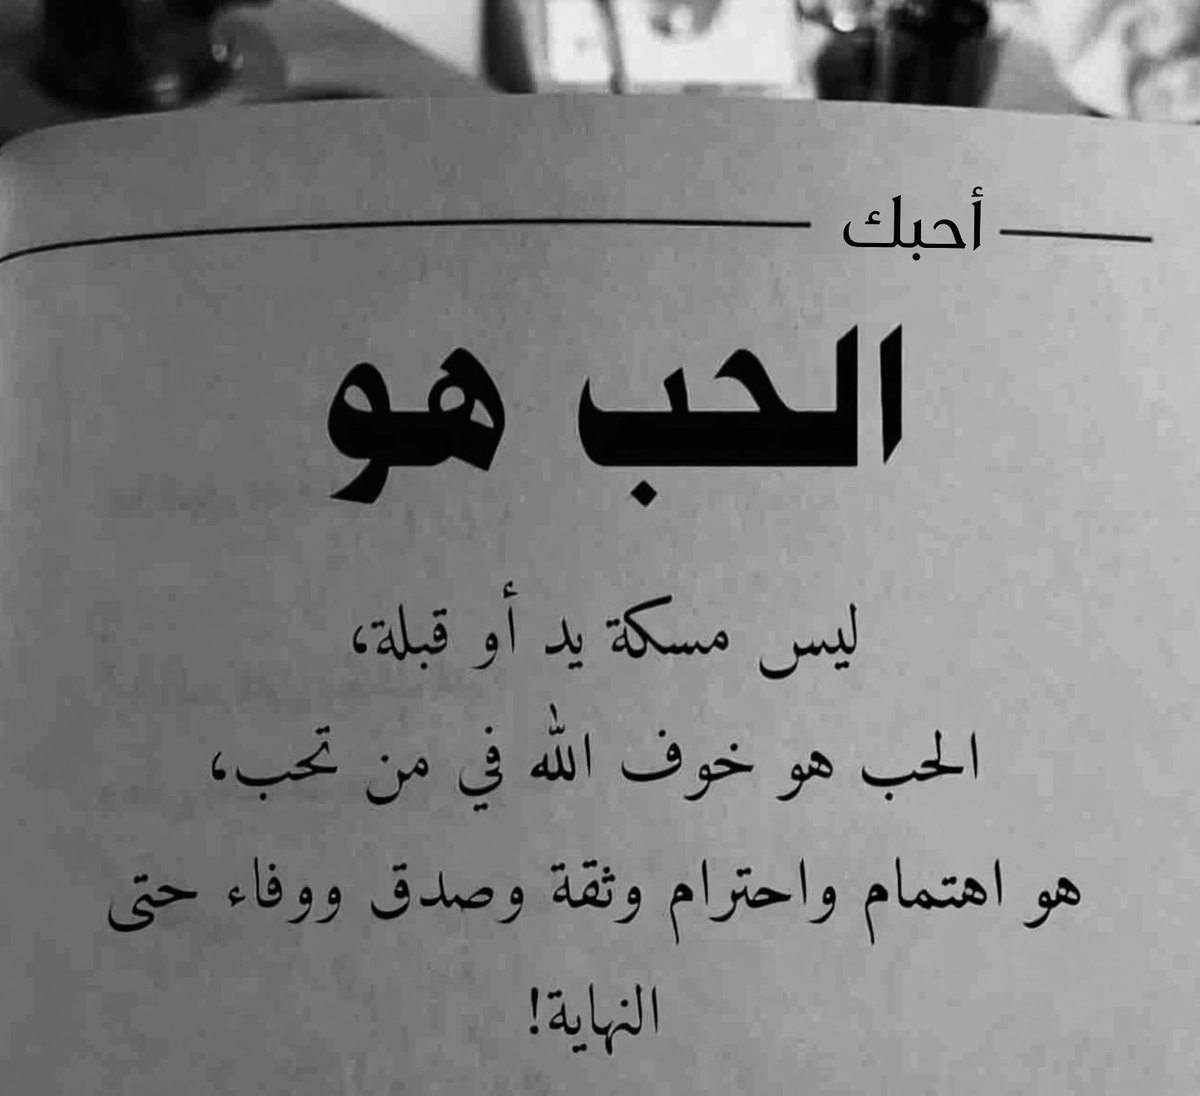 أحبك
الحب هو
ليس مسكة يد أو قبلة،
الحب هو خوف الله في من تحب،
هو اهتمام واحترام وثقة وصدق ووفاء حتى
النهاية!